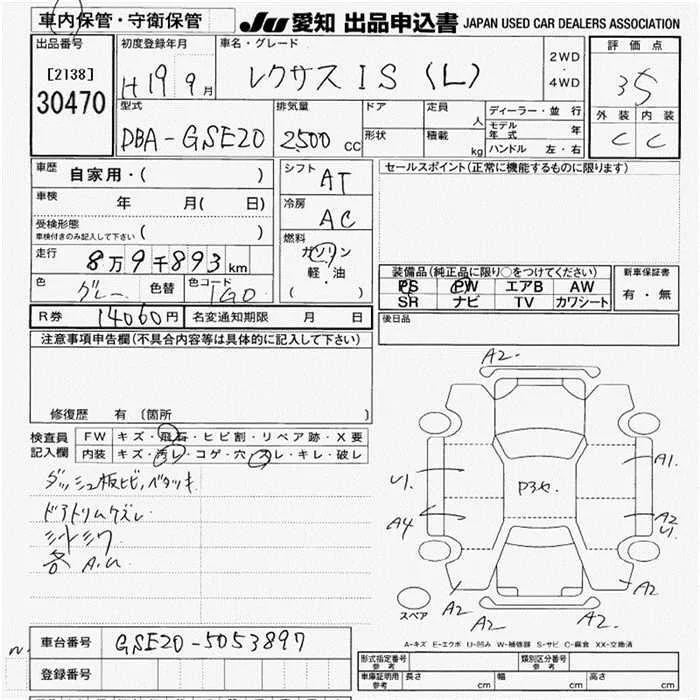 車内保管・守衛保管
JU 愛知 出品申込書 JAPAN USED CAR DEALERS ASSOCIATION
出品番号
[2138]
30470
初度登録年月
H19 9月
車名・グレード
レクサス IS (L)
2WD
・
4WD
評価点
35
外装 内装
C C
型式
DBA-GSE20
排気量
2500 cc
ドア
形状
定員 人
積載 kg
ディーラー・並行
モデル年式 年
ハンドル 左・右
車歴
自家用・( )
車検
年 月( 日)
受検形態
車検付きのみ記入して下さい ( )
走行
8万9千893km
色 グレー 色替 色コード 1G0
シフト
AT
冷房
AC
燃料
ガソリン
軽・油
( )
セールスポイント(正常に機能するものに限ります)
装備品(純正品に限り○をつけてください)
PS PW エアB AW
SR ナビ TV カワシート
新車保証書
有・無
R券 14060円 名変通知期限 月 日
後日品
注意事項申告欄(不具合内容等は具体的に記入して下さい)
修復歴 有 〔箇所 〕
検査員記入欄
FW キズ・飛石・ヒビ割・リペア跡・X要
内装 キズ・汚レ・コゲ・穴・スレ・キレ・破レ
ダッシュ板ヒビ、ベタツキ
ドアトリムケズレ
シートシワ
各 A.U
A2
U1.
A4
A1.
A2
U1.
A2
A2
A2
A2
スペア
A-キズ E-エクボ U-凹み W-補修跡 S-サビ C-腐食 XX-交換済
車台番号 GSE20-5053897
登録番号
形式指定番号 参考
類別区分番号 参考
車庫証明用 参考
長さ cm 幅 cm 高さ cm